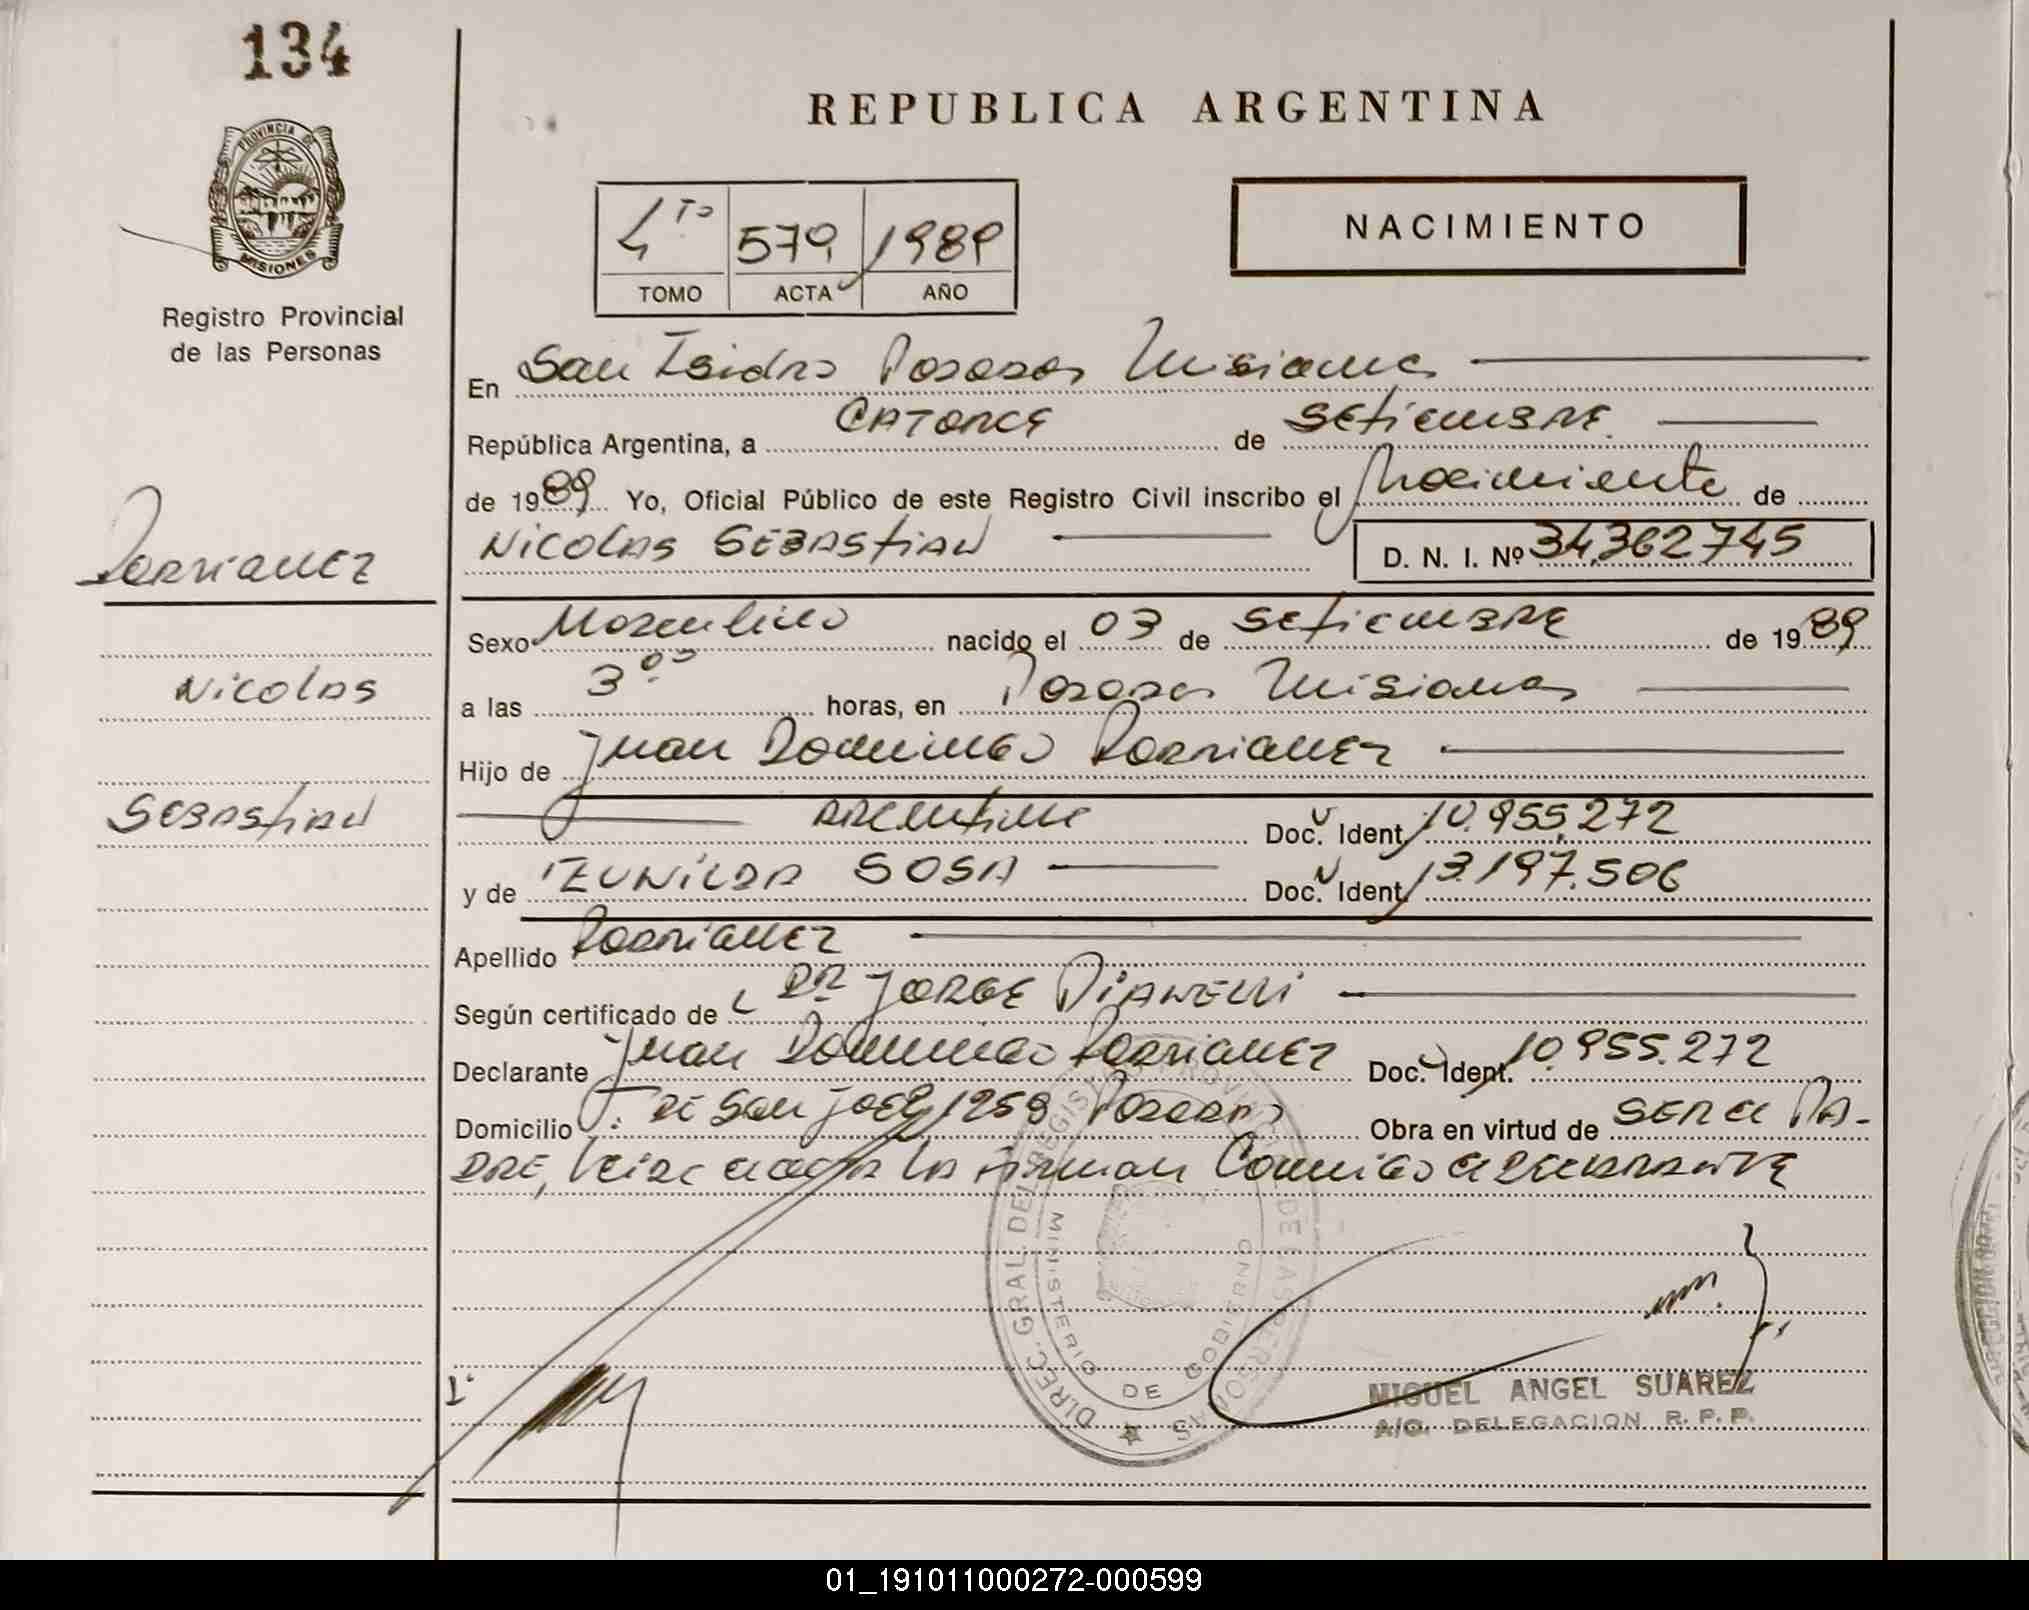 134
REPUBLICA ARGENTINA
PROVINCIA DE
MISIONES
Registro Provincial
de las Personas
NACIMIENTO
4to 579 1989
TOMO ACTA AÑO
En San Isidro Posadas Misiones
República Argentina, a CATORCE de SEtiEMBRE
de 1989 Yo, Oficial Público de este Registro Civil inscribo el Nacimiento de
NicolAS SEBAStiAN D. N. I. Nº 34.362745
Nicolas
SEBAStiAN
Sexo Masculino nacido el 03 de SEtiEMBRE de 1989
a las 3 horas, en Posadas Misiones
Hijo de Juan Domingo
ARGENtiNO Doc. Ident. 10.955.272
y de SOSA Doc. Ident. 13.197.506
Apellido
Según certificado de DR JORGE
Declarante Juan Domingo Doc. Ident. 10.955.272
Domicilio San José 1259 Posadas Obra en virtud de SER el PA-
DRE, leida el acta la firman Conmigo el DECLARANTE
DIREC. GRAL. DEL REGISTRO PROVINCIAL DE LAS PERSONAS
MINISTERIO DE GOBIERNO
MIGUEL ANGEL SUAREZ
A/C. DELEGACION R. P. P.
01_191011000272-000599